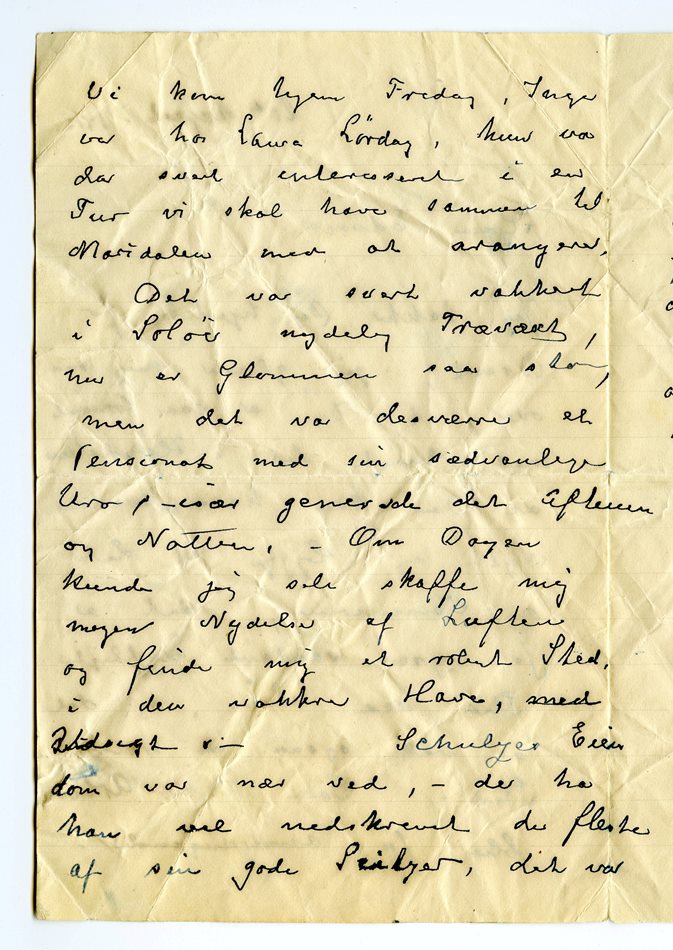 Vi kom hjem Fredag, Inga
var hos Laura Lördag, hun var
der svert interesseret i en
Tur vi skal have sammen til
Maridalen med at arangere.
Det var svert vakkert
i Solöer nydelig Trævæxt,
nu er Glommen saa stor,
men det var desværre et
Pensionat med sin sædvanlige
Uro, - især generede det Aftenen
og Natten, - Om Dagen
kunde jeg selv skaffe mig
megen Nydelse af Luften
og finde mig et rolent Sted,
i den vakkre Have, med
Udsigt - Schulzes Eien
dom var nær ved, - der ha
han vel nedskrevet de fleste
af sine gode , det var